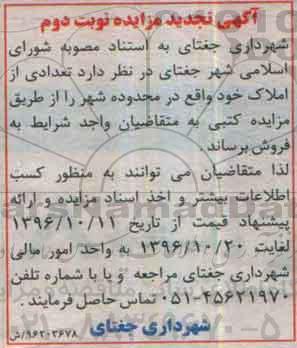 آگهی تجدید مزایده نوبت دوم
شهرداری جغتای به استناد مصوبه شورای
اسلامی شهر جغتای در نظر دارد تعدادی از
املاک خود واقع در محدوده شهر را از طریق
مزایده کتبی به متقاضیان واجد شرایط به
فروش برساند.
لذا متقاضیان می توانند به منظور کسب
اطلاعات بیشتر و اخذ اسناد مزایده و ارائه
پیشنهاد قیمت از تاریخ ۱۳۹۶/۱۰/۱۱
لغایت ۱۳۹۶/۱۰/۲۰ به واحد امور مالی
شهرداری جغتای مراجعه و یا با شماره تلفن
۰۵۱-۴۵۶۲۱۹۷۰ تماس حاصل فرمایند.
شهرداری جغتای
۹۶۲۰۳۶۷۸/ش